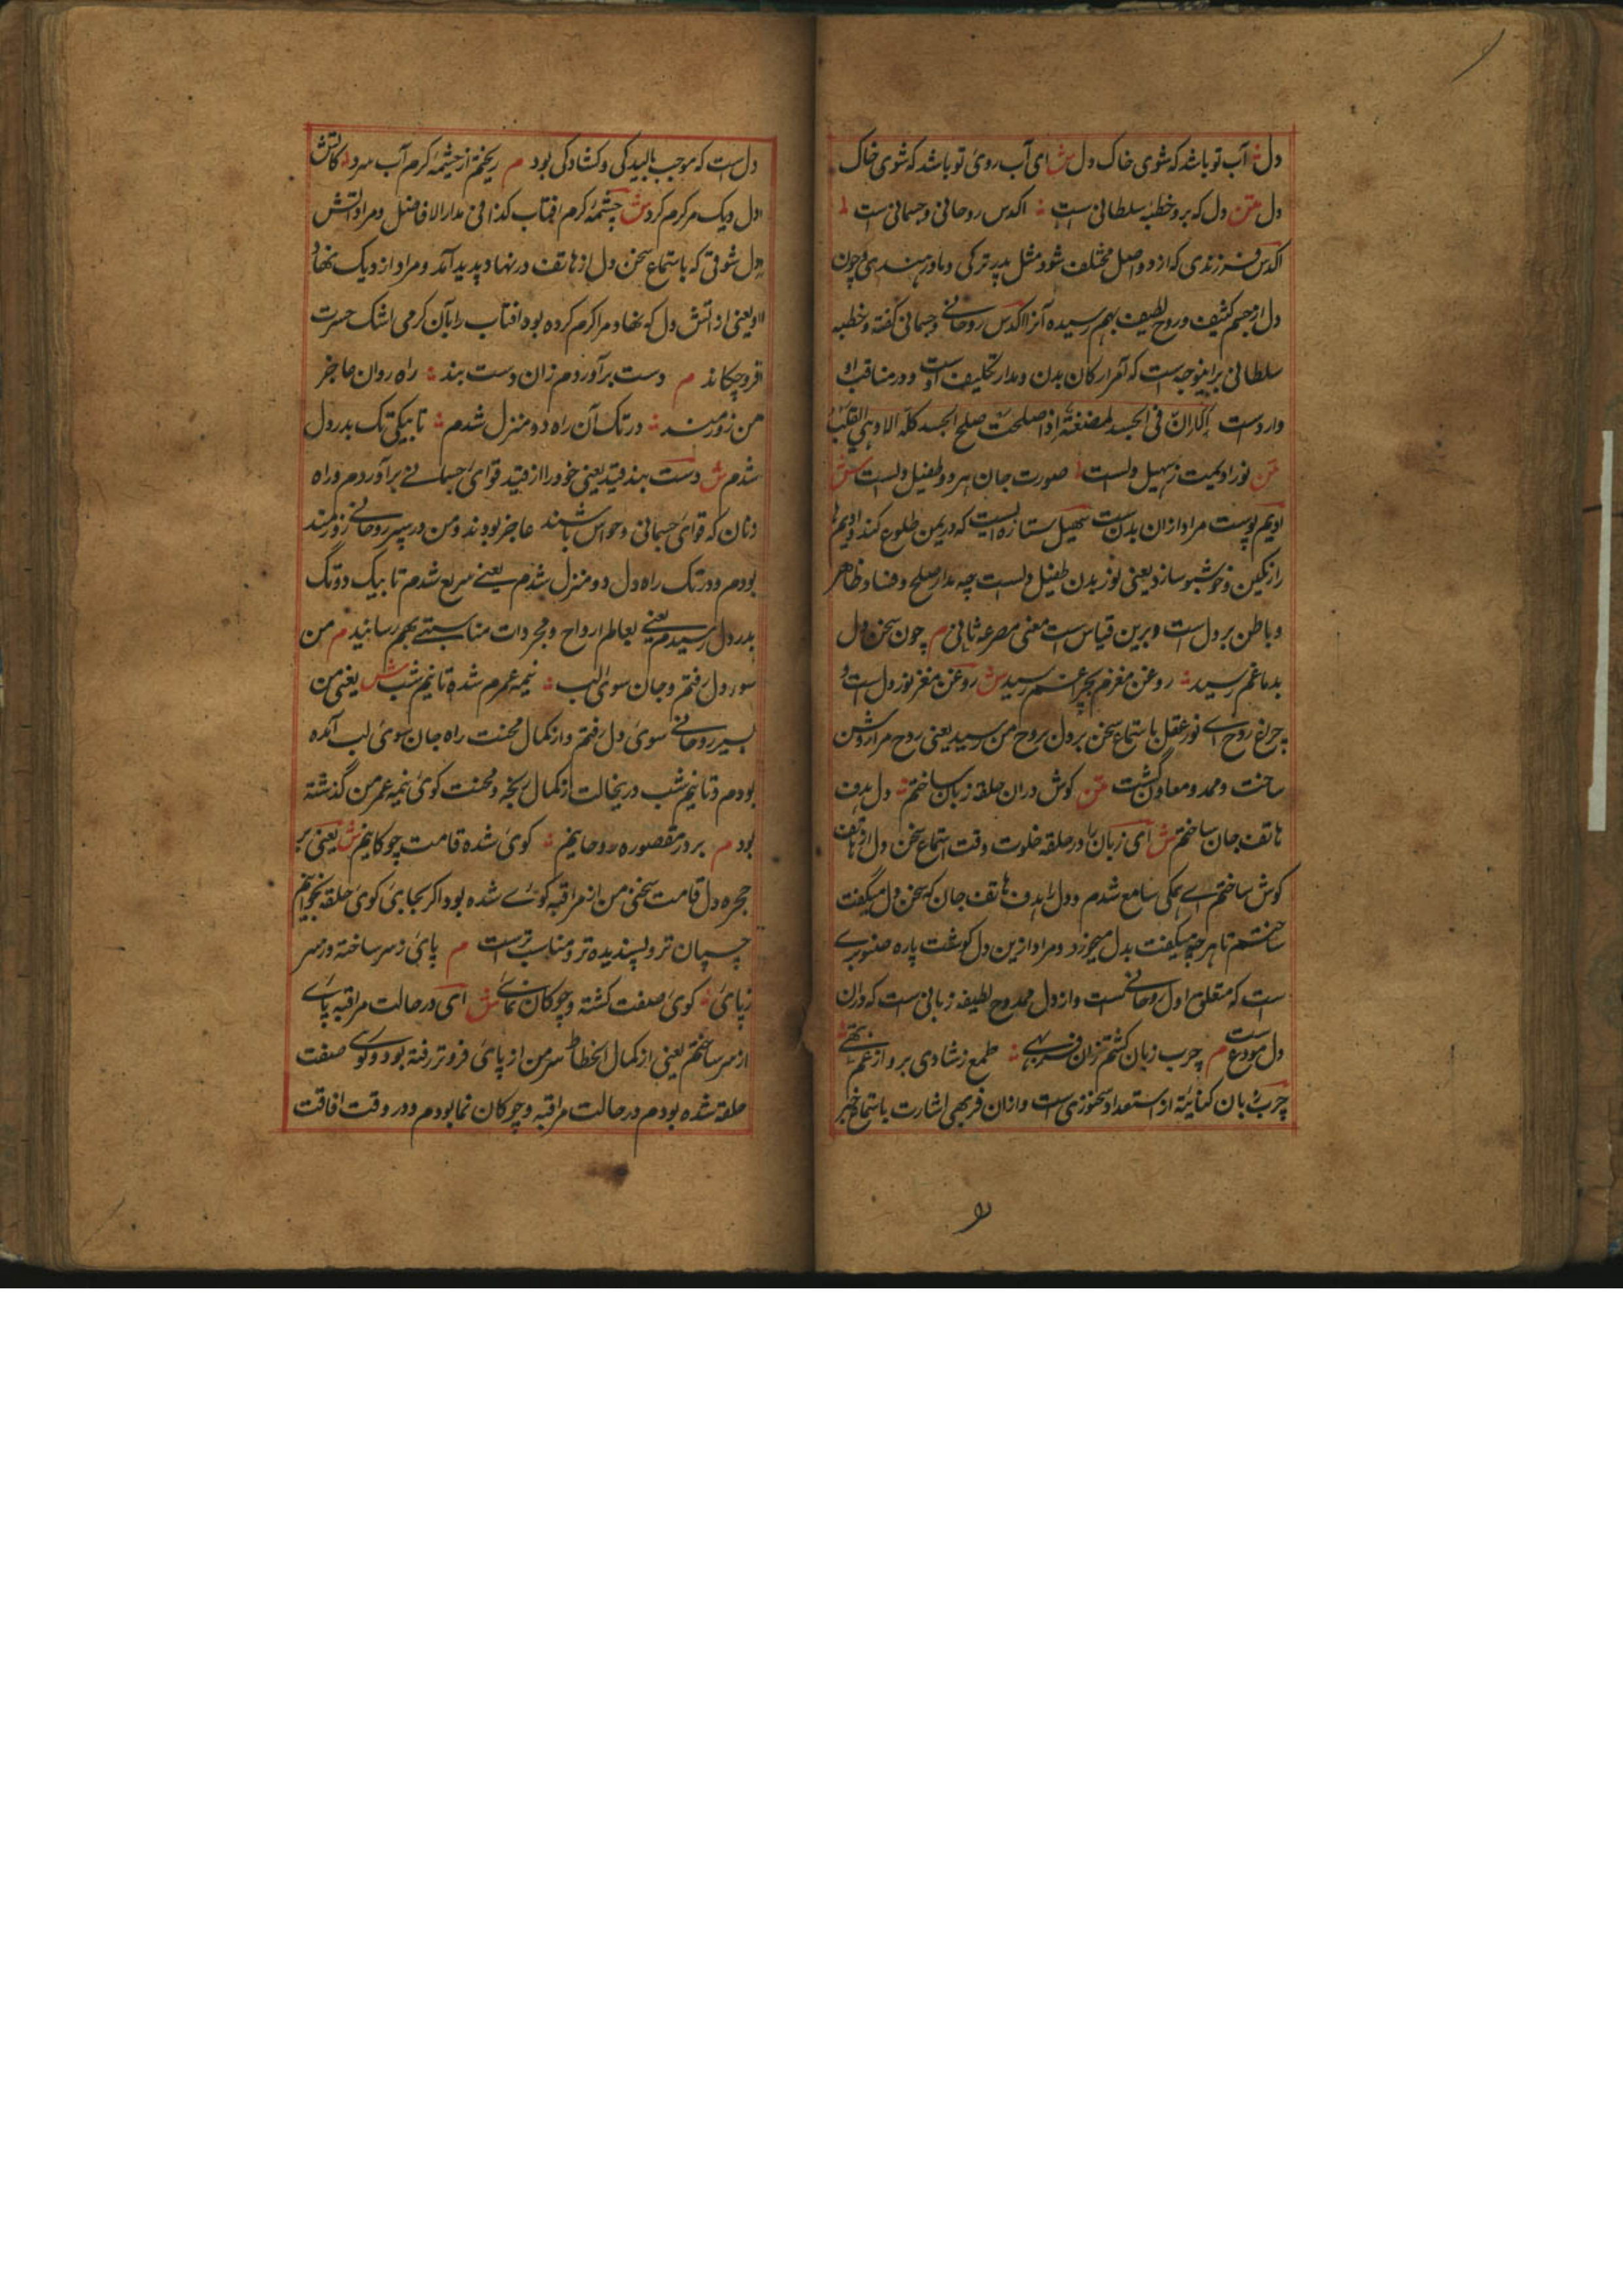 دل آب تو باشد که شوی خاک دل ش ای آب روی تو باشد که شوی خاک
دل متن دل که برو خطبه سلطانی است اکدش روحانی و جسمانی است
اکدش فرزندی که از دو اصل مختلف شود مثل پدر ترکی و مادر هندی و چون
دل از جسم کثیف و روح لطیف بهم رسیده آنرا اکدش روحانی و جسمانی گفته و خطبه
سلطانی براینوجه است که آمر ارکان بدن و مدار تکلیف اوست و در مناقب او
وارد است ان فی الجسد لمضغة اذا صلحت صلح الجسد کله الا وهی القلب
متن نور ادیمت ز سهیل دلست صورت جان هر دو طفیل دلست ش
ادیم پوست مراد ازان بدنست سهیل ستاره ایست که در یمن طلوع کند و ادیم
را رنگین و خوشبو سازد یعنی نور بدن طفیل دلست چه مدار صلح و فساد ظاهر
و باطن بر دل است و برین قیاس است معنی مصرعه ثانی م چون سخن دل
بدماغم رسید روغن مغزم بچراغم رسید ش روغن مغز نور دل است و
چراغ روح ای نور عقل باستماع سخن بر دل بروح من رسید یعنی روح مرا روشن
ساخت و ممد و معاون گشت متن گوش دران حلقه زبان ساختم دل هدف
هاتف جان ساختم ش ای زبان را در حلقه خلوت وقت استماع سخن دل از هاتف
گوش ساختم ای همگی سامع شدم و دل را هدف هاتف جان که سخن دل میگفت
ساختم تا هر چه میگفت بدل میخورد و مراد ازین دل گوشت پاره صنوبری
است که متعلق اول روحانی است و از دل ممدوح لطیفه ربانی است که دران
دل مودع است م چرب زبان گشتم ازان فربهی طبع ز شادی پر و از غم تهی
چرب زبان کنایه از استعداد سخنوری است و ازان فربهی اشارت باستماع خبر
دل است که موجب بالیدگی و کشادگی بود م ریختم از چشمه گرم آب سرد کاتش
دل دیگ مرا گرم کرد ش چشمه گرم افتاب کذا فی مدار الافاضل و مراد از اتش
دل شوقی که باستماع سخن دل از هاتف در نهاد پدید آمد و مراد از دیگ نهاد
او یعنی از اتش دل که نهاد مرا گرم کرده بود افتاب را بآن گرمی اشک حسرت
فرو چکاند م دست بر آوردم زان دست بند راه روان عاجز
من زورمند در تک آن راه دو منزل شدم تا بیکی تک بدر دل
شدم ش دست بند قید یعنی خود را از قید قوای جسمانی بر آوردم و راه
دنان که قوای جسمانی و حواس باشند عاجز بودند و من در سیر روحانی زورمند
بودم و در تک راه دل دو منزل شدم یعنی سریع شدم تا بیک دو تگ
بدر دل رسیدم یعنی بعالم ارواح و مجردات مناسبتی بهم رسانید م من
سوی دل رفتم و جان سوی لب نیمه عمرم شده تا نیم شب ش یعنی من
بسیر روحانی سوی دل رفتم و از کمال محنت راه جان سوی لب آمده
بودم و تا نیم شب درینحالت از کمال رنج و محنت گوئی نیمه عمر من گذشته
بود م بر در مقصوره روحانیم گوی شده قامت چوگانیم ش یعنی بر
حجره دل قامت منحنی من از مراقبه گوئی شده بود اگر بجای گوی حلقه بخوانیم
چسپان تر و پسندیده تر و مناسب ترست م پای ز سر ساخته و ز سر
ز پای گوی صفت گشته و چوگان نمای ش ای در حالت مراقبه پای
از سر ساختم یعنی از کمال انحطاط سر من از پای فروتر رفته بود و گوی صفت
حلقه شده بودم در حالت مراقبه و چوگان نما بودم و در وقت افاقت